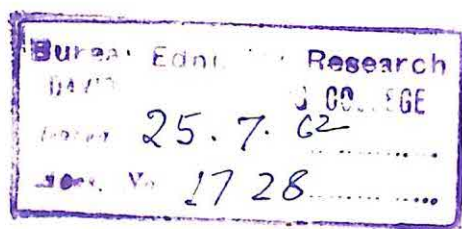 Bureau Ednl. Research
COLLEGE
Dated 25.7.62
No. 1728